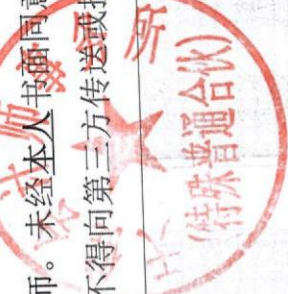 师。未经本人书面同意
不得向第三方传送或
师事务所
(特殊普通合伙)